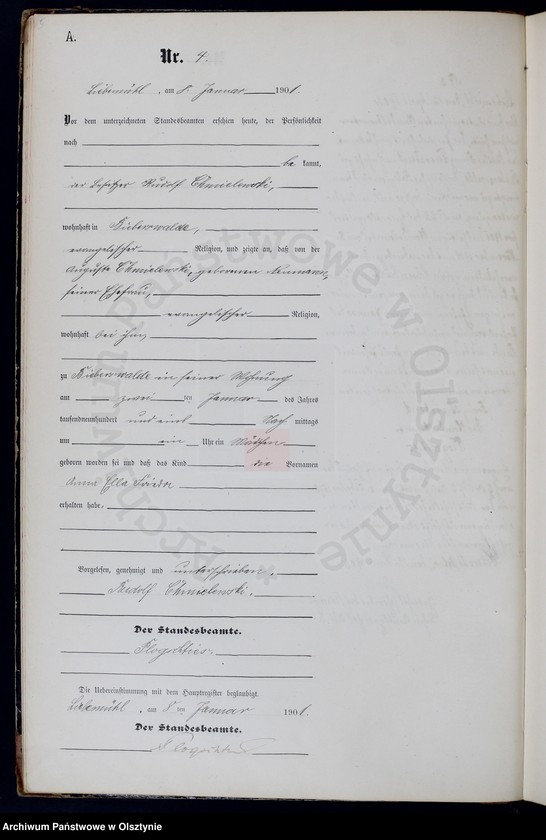 A.
Nr. 4.
Liebemühl, am 8. Januar 1901.
Vor dem unterzeichneten Standesbeamten erschien heute, der Persönlichkeit
nach
be kannt,
der Besitzer Rudolf Chmielewski,
wohnhaft in Bieberswalde,
evangelischer Religion, und zeigte an, daß von der
Auguste Chmielewski, geborenen Neumann,
seiner Ehefrau,
evangelischer Religion,
wohnhaft bei ihm
zu Bieberswalde in seiner Wohnung
am zwei ten Januar des Jahres
tausendneunhundert und eins Nach mittags
um ein Uhr ein Mädchen
geboren worden sei und daß das Kind die Vornamen
Anna Ella Frieda
erhalten habe.
Vorgelesen, genehmigt und unterschrieben.
Rudolf Chmielewski.
Der Standesbeamte.
Die Uebereinstimmung mit dem Hauptregister beglaubigt.
Liebemühl, am 8 ten Januar 1901.
Der Standesbeamte.
Archiwum Państwowe w Olsztynie
Archiwum Państwowe w Olsztynie